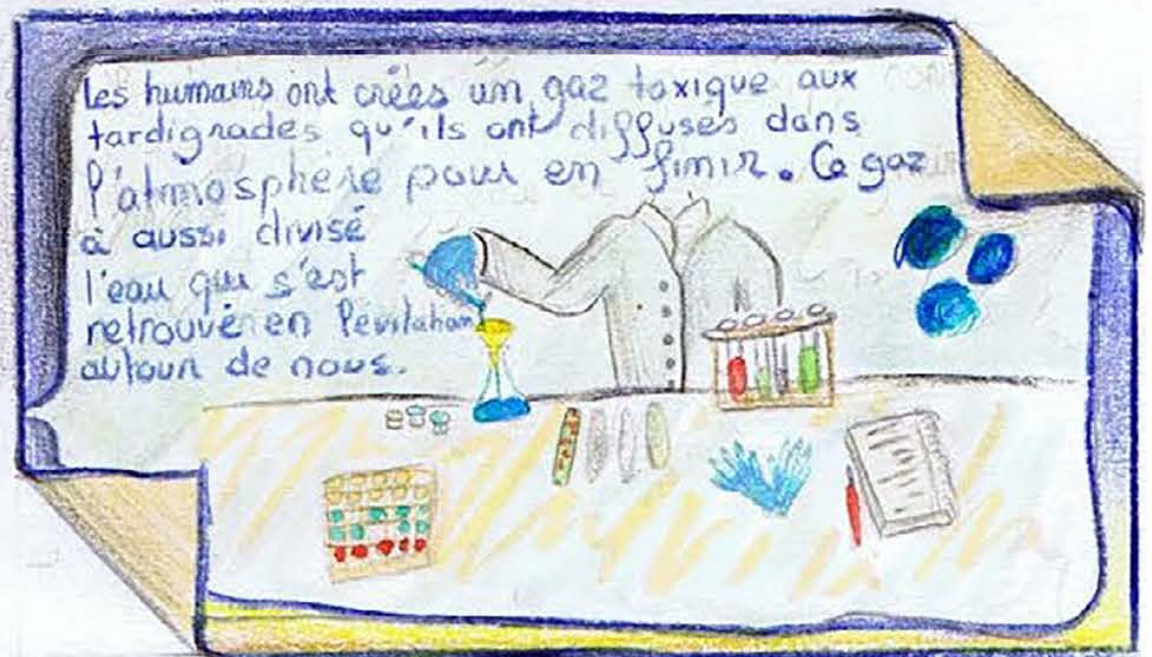 les humains ont crées un gaz toxique aux
tardigrades qu'ils ont diffuses dans
l'atmosphère pour en finir. Ce gaz
à aussi divisé
l'eau qui s'est
retrouvé en
autour de nous.